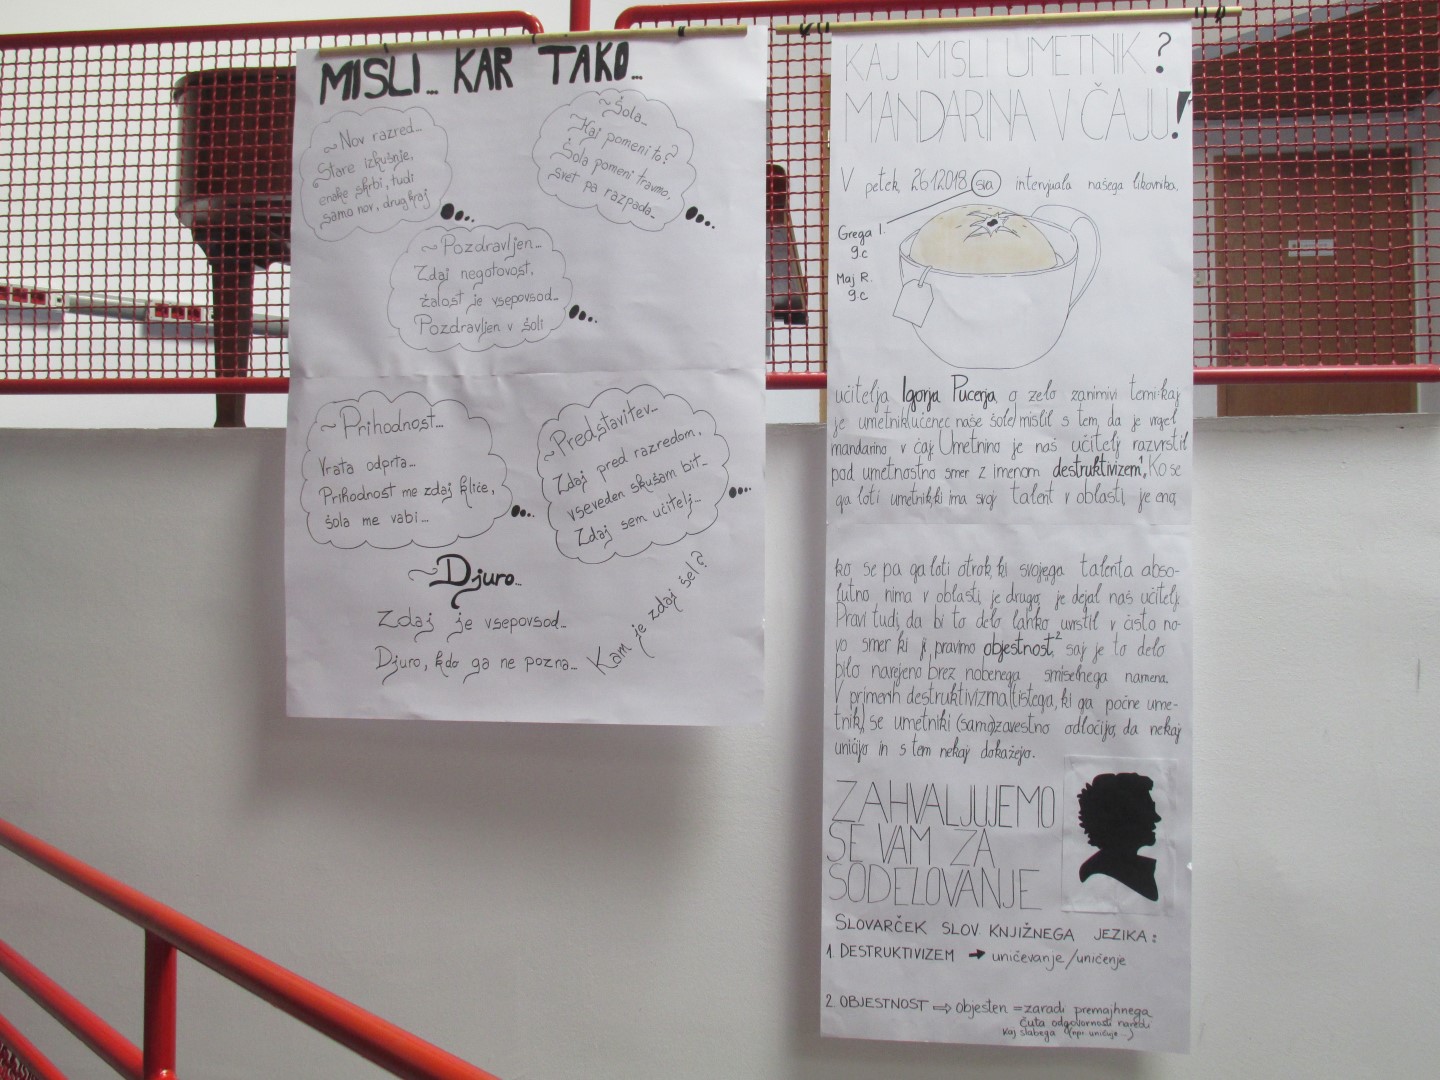 MISLI... KAR TAKO...
~Nov razred...
Stare izkušnje,
enake skrbi, tudi
samo nov, drug kraj
~Šola...
Kaj pomeni to?
Šola pomeni travmo,
svet pa razpada...
~Pozdravljen...
Zdaj negotovost,
žalost je vsepovsod...
Pozdravljen v šoli
~Prihodnost...
Vrata odprta...
Prihodnost me zdaj kliče,
šola me vabi...
~Predstavitev...
Zdaj pred razredom,
vseveden skušam bit...
Zdaj sem učitelj...
~Djuro...
Zdaj je vsepovsod...
Djuro, kdo ga ne pozna...
Kam je zdaj šel?
KAJ MISLI UMETNIK?
MANDARINA V ČAJU!
V petek, 26.1.2018 sva intervjuala našega likovnika,
Grega I.
9.c
Maj R.
9.c
učitelja Igorja Pucerja, o zelo zanimivi temi: kaj
je umetnik(učenec naše šole) mislil s tem, da je vrgel
mandarino v čaj. Umetnino je naš učitelj razvrstil
pod umetnostno smer z imenom destruktivizem¹. Ko se
ga loti umetnik, ki ima svoj talent v oblasti, je eno,
ko se pa ga loti otrok, ki svojega talenta abso-
lutno nima v oblasti, je drugo, je dejal naš učitelj.
Pravi tudi, da bi to delo lahko uvrstil v čisto no-
vo smer ki ji pravimo objestnost², saj je to delo
bilo narejeno brez nobenega smiselnega namena.
V primerih destruktivizma(tistega, ki ga počne ume-
tnik) se umetniki (samo)zavestno odločijo, da nekaj
uničijo in s tem nekaj dokažejo.
ZAHVALJUJEMO
SE VAM ZA
SODELOVANJE
SLOVARČEK SLOV. KNJIŽNEGA JEZIKA:
1. DESTRUKTIVIZEM → uničevanje/uničenje
2. OBJESTNOST ⇨ objesten = zaradi premajhnega
čuta odgovornosti naredi
kaj slabega (npr. uničuje ...)